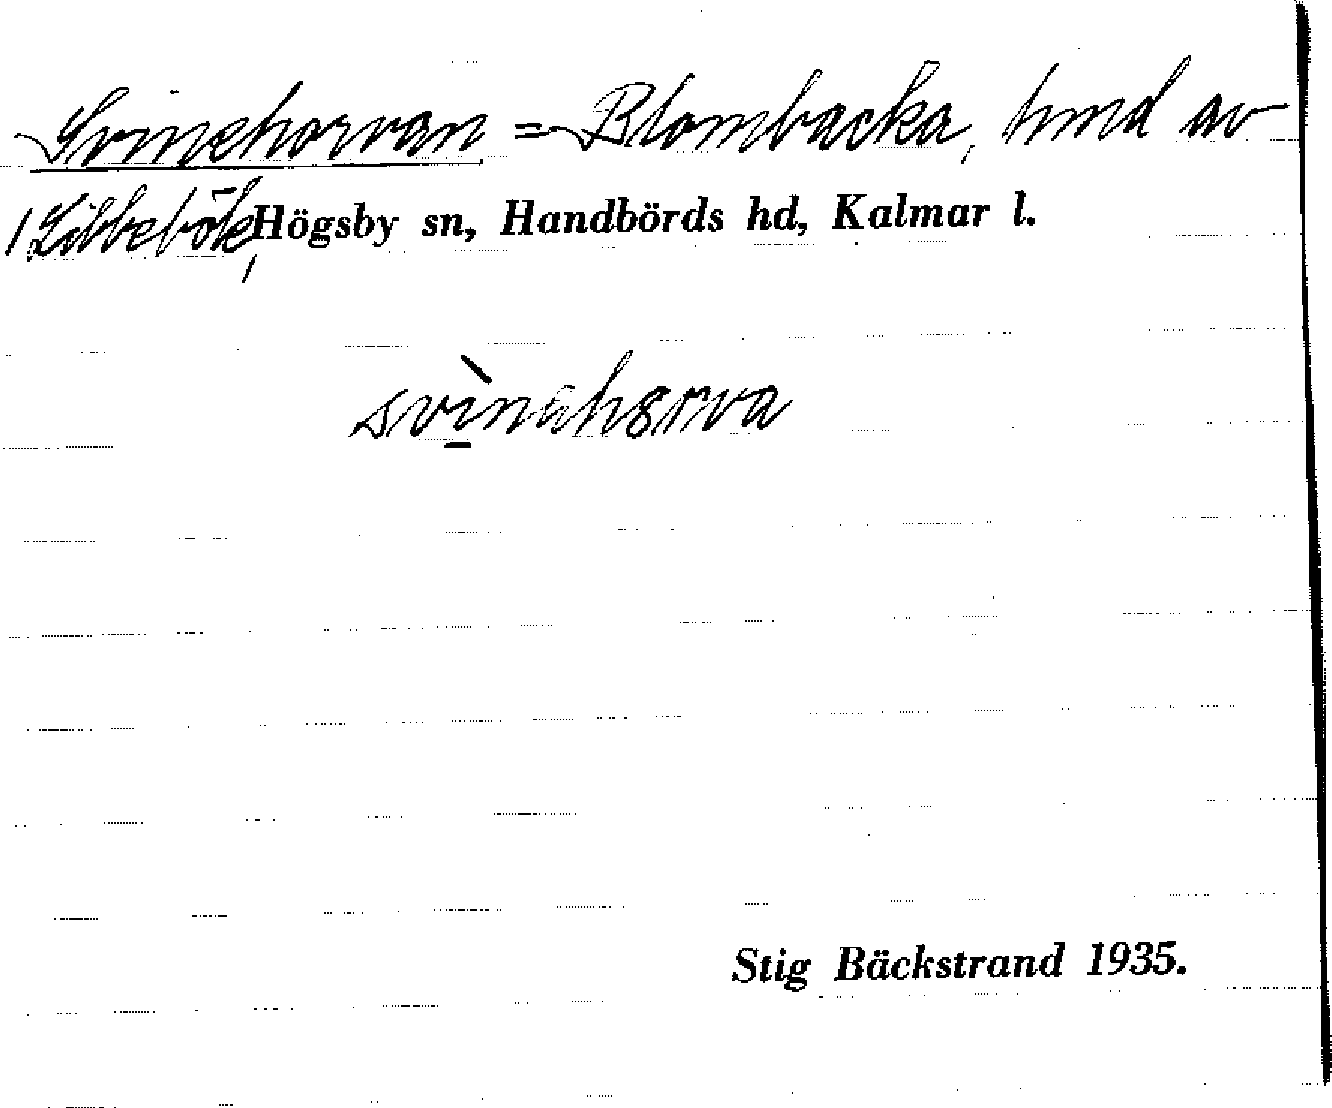 Svinehorvan = Blombacka, hmd av
1 Libbeböle, Högsby sn, Handbörds hd, Kalmar l.
Stig Bäckstrand 1935.